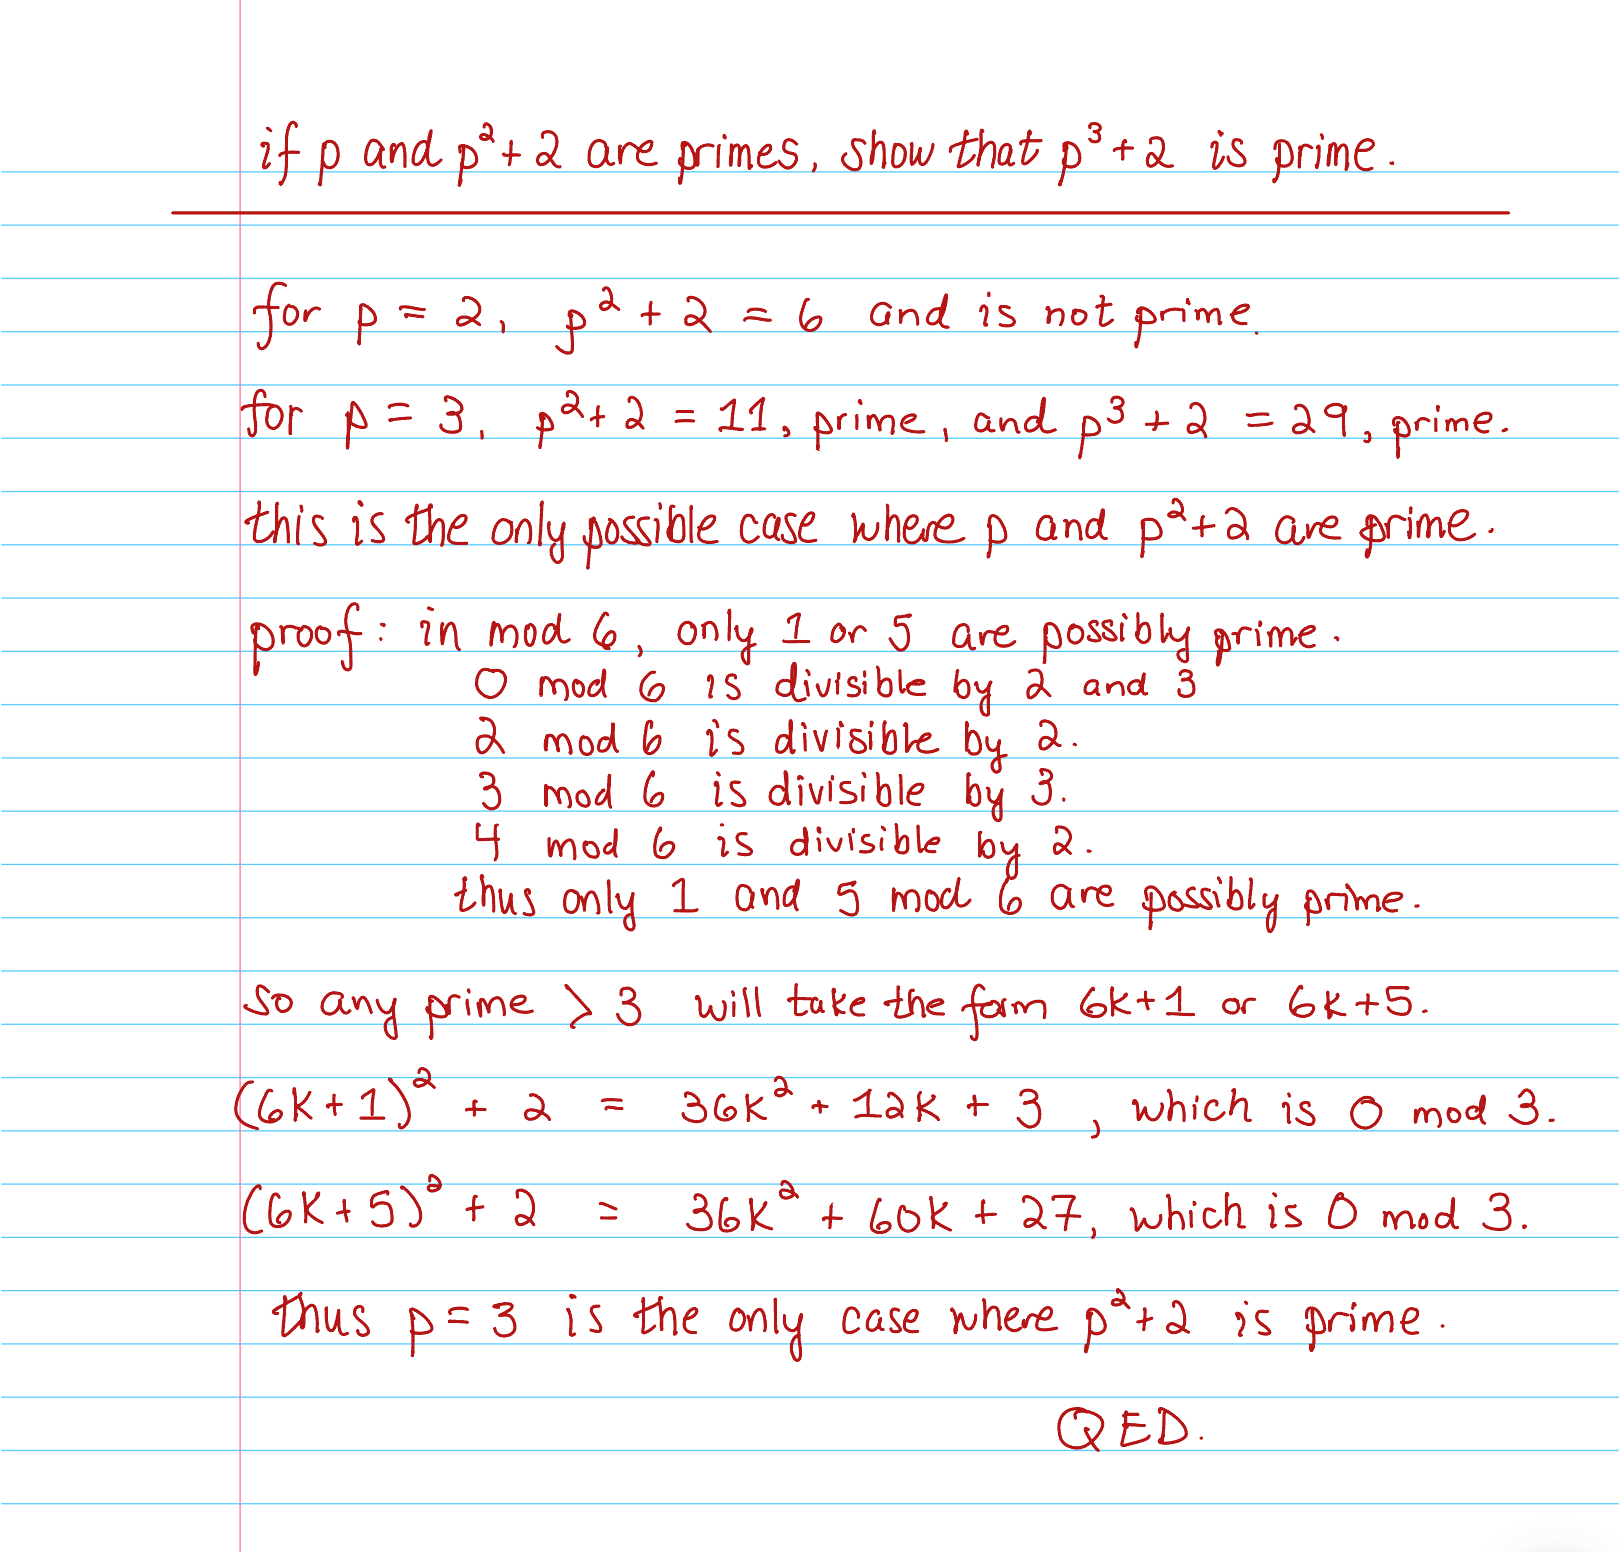 if p and p²+2 are primes, show that p³+2 is prime.
for p = 2, p²+2 = 6 and is not prime.
for p = 3, p²+2 = 11, prime, and p³+2 = 29, prime.
this is the only possible case where p and p²+2 are prime.
proof: in mod 6, only 1 or 5 are possibly prime.
0 mod 6 is divisible by 2 and 3
2 mod 6 is divisible by 2.
3 mod 6 is divisible by 3.
4 mod 6 is divisible by 2.
thus only 1 and 5 mod 6 are possibly prime.
so any prime > 3 will take the form 6k+1 or 6k+5.
(6k+1)² + 2 = 36k² + 12k + 3, which is 0 mod 3.
(6k+5)² + 2 = 36k² + 60k + 27, which is 0 mod 3.
thus p=3 is the only case where p²+2 is prime.
QED.